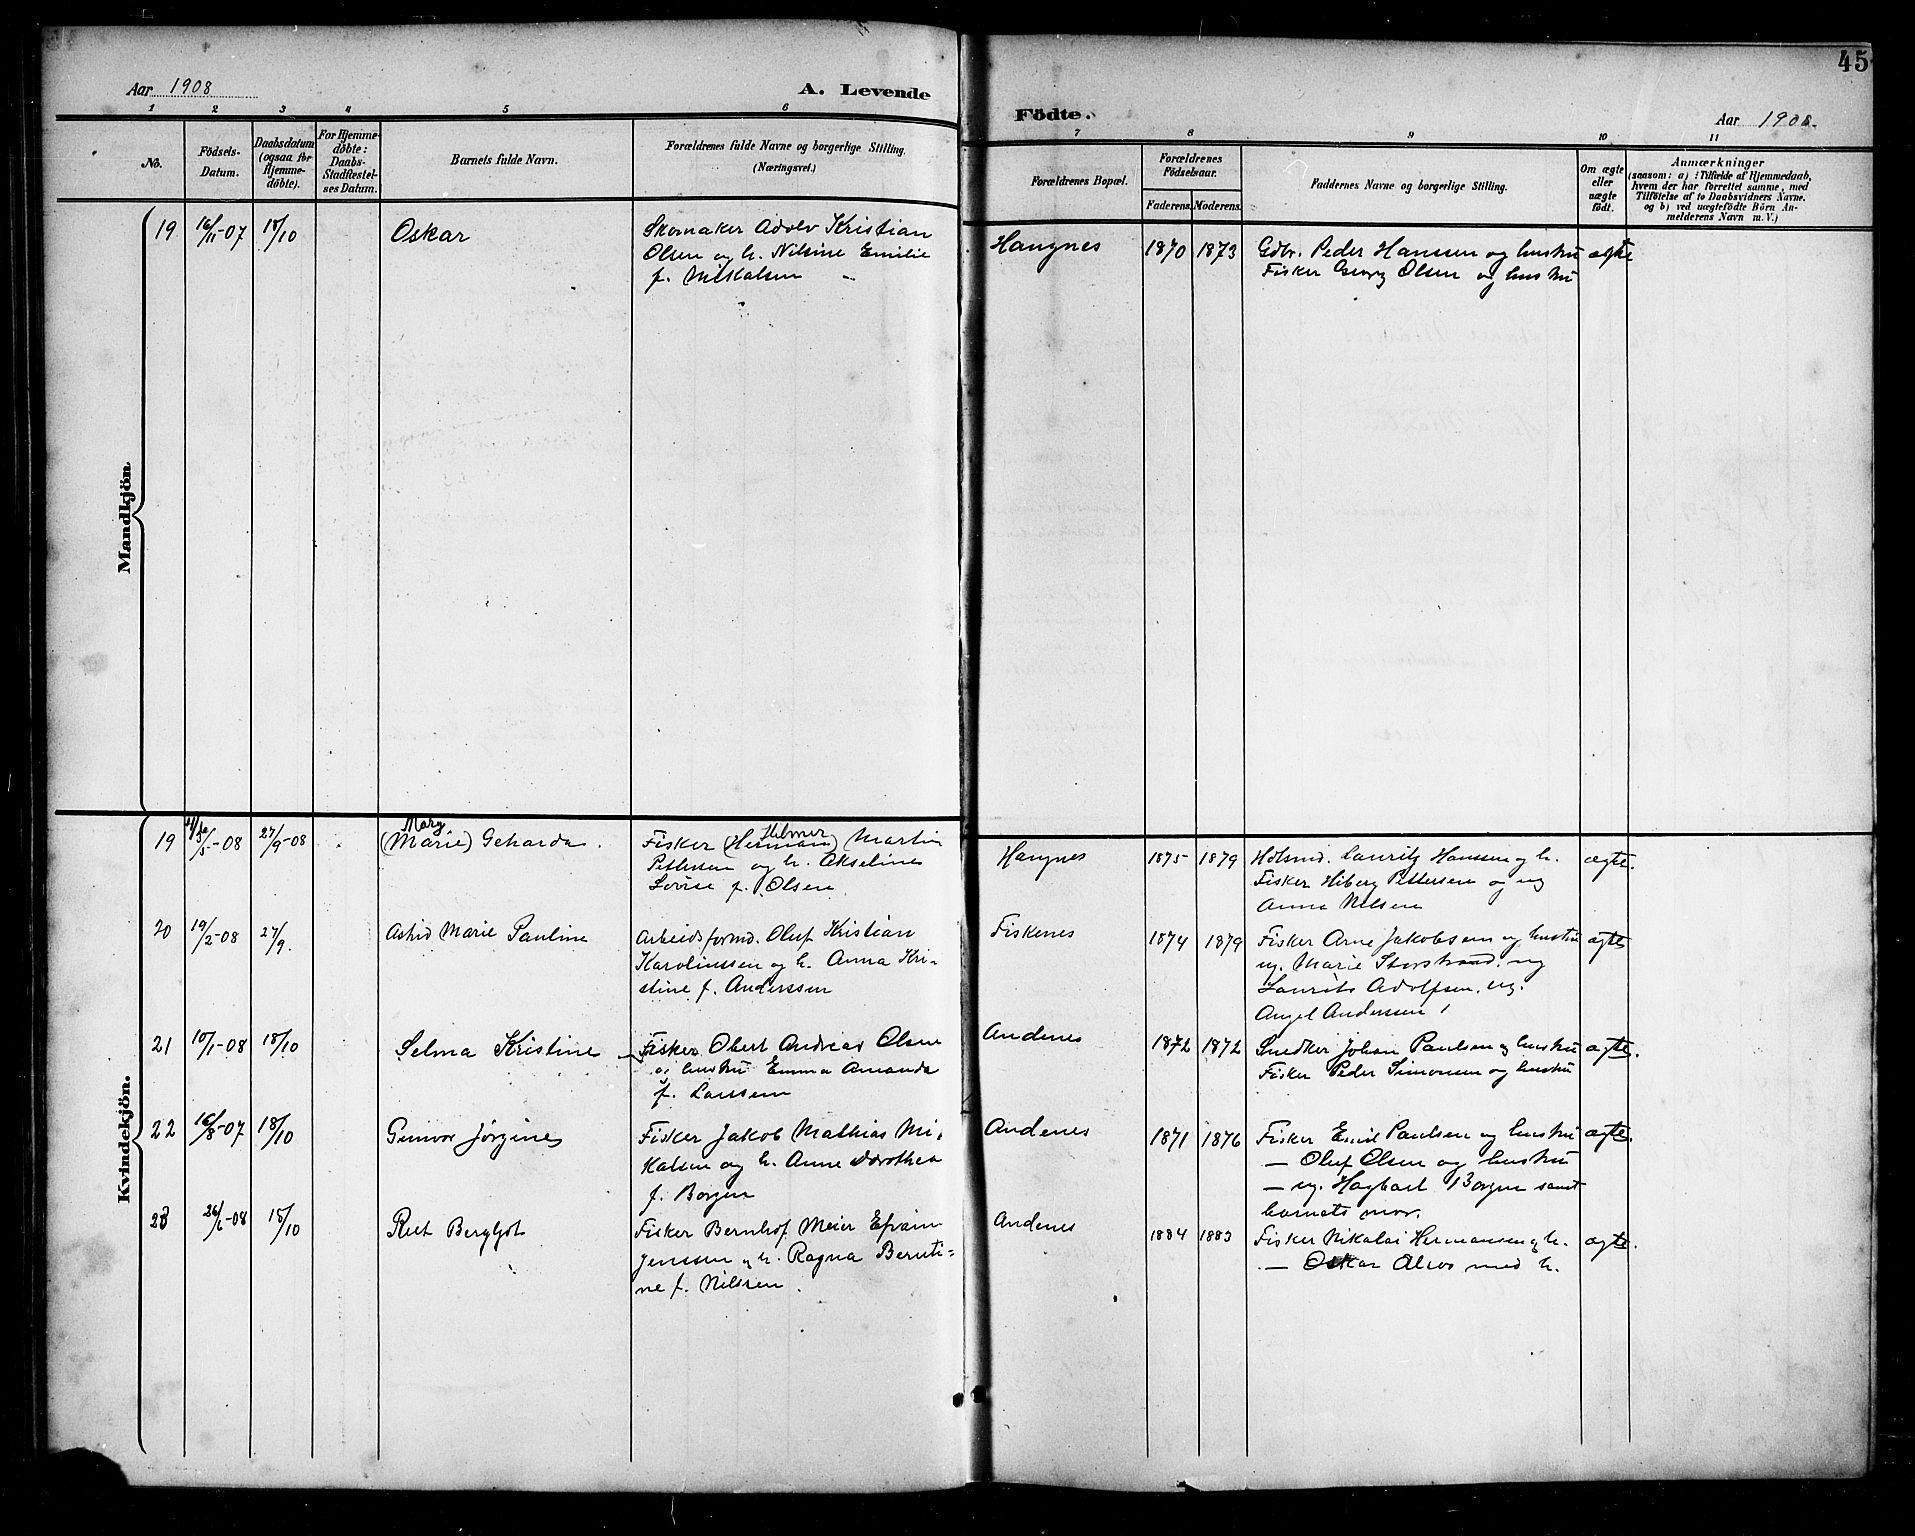 45
Aar 1908
A. Levende
Födte.
Aar 1908.
1 2 3 4 5 6 7 8 9 10 11
No.
Födsels-
Datum.
Daabsdatum
(ogsaa for
Hjemme-
döbte).
For Hjemme-
döbte:
Daabs-
Stadfæstel-
ses Datum.
Barnets fulde Navn.
Forældrenes fulde Navne og borgerlige Stilling.
(Næringsvei.)
Forældrenes Bopæl.
Forældrenes
Födselsaar.
Faderens. Moderens.
Faddernes Navne og borgerlige Stilling.
Om ægte
eller
uægte
födt.
Anmærkninger
(saasom: a) i Tilfælde af Hjemmedaab,
hvem der har forrettet samme, med
Tilföielse af to Daabsvidners Navne,
og b) ved uægtefödte Börn An-
melderens Navn m. V.)
Mandkjön.
19 16/11-07 18/10 Oskar
Skomaker Adolv Kristian
Olsen og h. Nilsine Emilie
f. Nikalsen
Haugnes 1870 1873
Gdbr. Peder Hanssen og hustru
Fisker Georg Olsen og hustru
ægte
Kvindekjön.
19 /5-08 27/9-08
Mary
(Marie) Geharda.
Hilmer
Fisker (Herman) Martin
Pettersen og h. Akseline
Lovise f. Olsen
Haugnes 1875 1879
Hanssen og h.
Fisker Hiberg Pettersen og ug
Anna Nilsen
ægte.
20 19/2-08 27/9. Astrid Marie Pauline
Arbeidsformd. Oluf Kristian
Karolinssen og h. Anna Kri-
stine f. Anderssen
Fiskenes 1874 1879
Fisker Arne Jakobsen og hustru
ug. Marie Storstrand. ug
Laurits Adolfsen. ug.
Angel Andersen
ægte
21 10/1-08 18/10 Selma Kristine
Fisker Obert Andreas Olsen
og hustru Emma Amanda
f. Larssen
Andenes 1872 1872
Snedker Johan Paulsen og hustru
Fisker Peder Simonsen og hustru
ægte.
22 16/8-07 18/10 Gunvor Jørgine
Fisker Jakob Mathias Mi-
kalsen og h. Anne Dorothea
f. Borgen
Andenes 1871 1876
Fisker Emil Paulsen og hustru
— Oluf Olsen og hustru
— ug. Hagbart Borgen samt
barnets mor.
ægte.
23 26/6-08 18/10 Rut Bergljot
Fisker Bernhof Meier Efraim
Jenssen og h. Ragna Bernti-
ne f. Nilsen.
Andenes 1884 1883
Fisker Nikolai Hermansen og h.
— Oskar Alvos med h.
ægte.